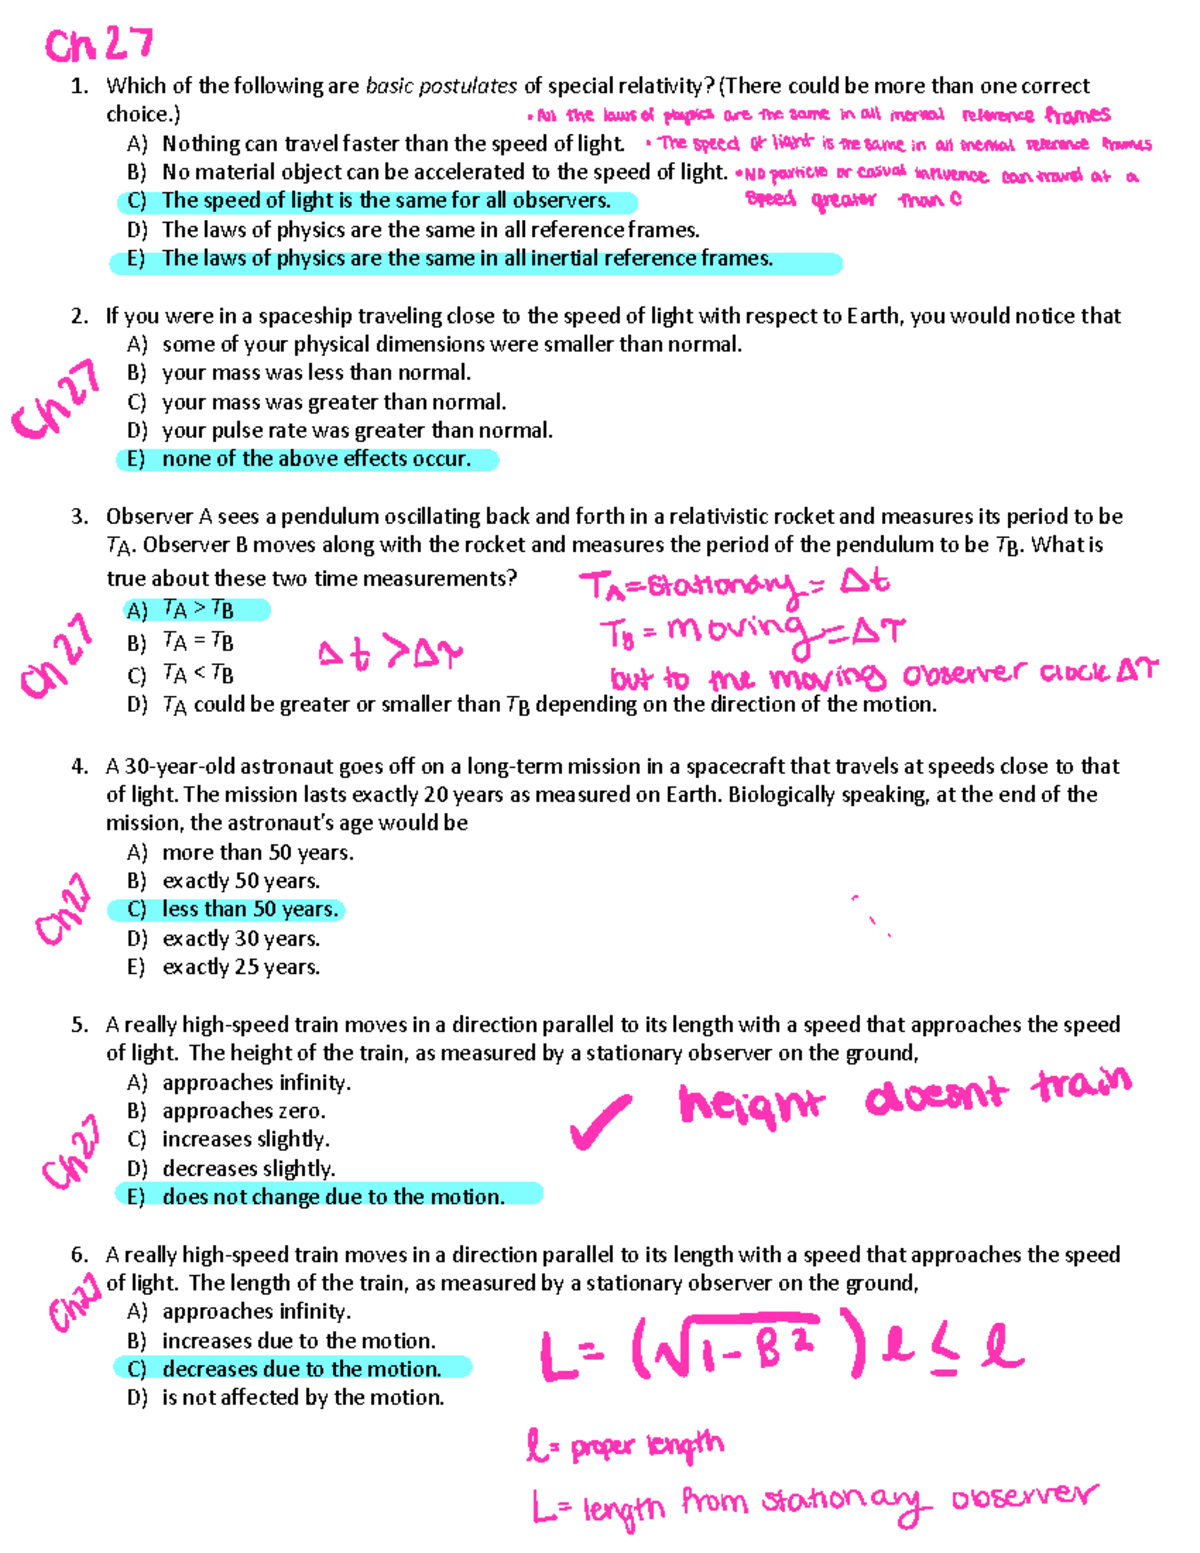 Ch 27
1. Which of the following are basic postulates of special relativity? (There could be more than one correct
choice.)
• All the laws of physics are the same in all inertial reference frames
A) Nothing can travel faster than the speed of light.
• The speed of light is the same in all inertial reference frames
B) No material object can be accelerated to the speed of light.
• No particle or casual influence can travel at a
C) The speed of light is the same for all observers.
speed greater than C
D) The laws of physics are the same in all reference frames.
E) The laws of physics are the same in all inertial reference frames.
2. If you were in a spaceship traveling close to the speed of light with respect to Earth, you would notice that
A) some of your physical dimensions were smaller than normal.
B) your mass was less than normal.
Ch 27
C) your mass was greater than normal.
D) your pulse rate was greater than normal.
E) none of the above effects occur.
3. Observer A sees a pendulum oscillating back and forth in a relativistic rocket and measures its period to be
TA. Observer B moves along with the rocket and measures the period of the pendulum to be TB. What is
true about these two time measurements?
TA = stationary = Δt
A) TA > TB
TB = moving = ΔT
B) TA = TB
Δt > ΔT
Ch 27
C) TA < TB
but to the moving observer clock ΔT
D) TA could be greater or smaller than TB depending on the direction of the motion.
4. A 30-year-old astronaut goes off on a long-term mission in a spacecraft that travels at speeds close to that
of light. The mission lasts exactly 20 years as measured on Earth. Biologically speaking, at the end of the
mission, the astronaut's age would be
A) more than 50 years.
B) exactly 50 years.
Ch 27
C) less than 50 years.
D) exactly 30 years.
E) exactly 25 years.
5. A really high-speed train moves in a direction parallel to its length with a speed that approaches the speed
of light. The height of the train, as measured by a stationary observer on the ground,
A) approaches infinity.
✓ height doesnt train
B) approaches zero.
C) increases slightly.
Ch 27
D) decreases slightly.
E) does not change due to the motion.
6. A really high-speed train moves in a direction parallel to its length with a speed that approaches the speed
of light. The length of the train, as measured by a stationary observer on the ground,
Ch 27
A) approaches infinity.
B) increases due to the motion.
L = (√1-B²) l ≤ l
C) decreases due to the motion.
D) is not affected by the motion.
l = proper length
L = length from stationary observer